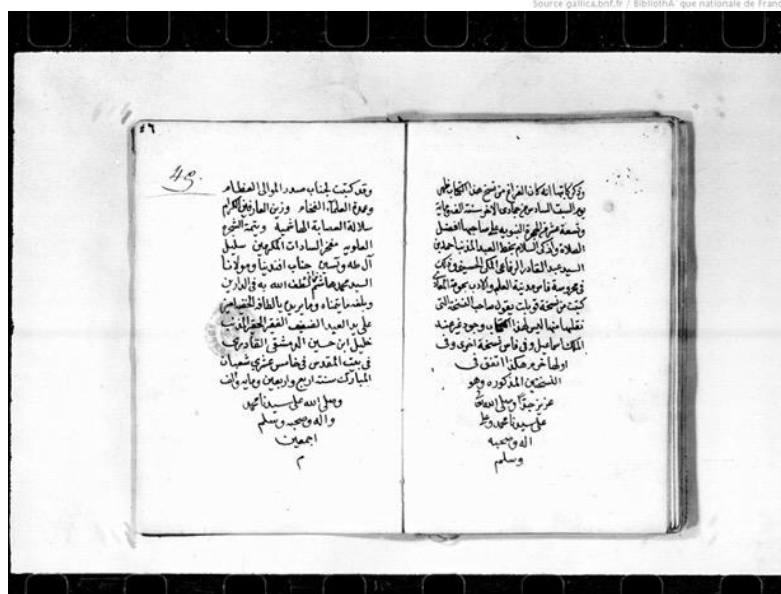 Source gallica.bnf.fr / BibliothÃ¨que nationale de Franc
وذكر كاتبها انه كان الفراغ من نسخ هذا الكتاب ظهر
يوم السبت السادس من جمادى الاخر سنة الف وماية
وتسعة عشر من الهجرة النبوية على صاحبها افضل
الصلاة وازكى السلام بخط العبد المذنب احمد بن
السيد عبد القادر الرفاعي المكي وذلك
في محروسة فاس مدينة العلم والادب
كتبت من نسخة قوبلت يقول صاحب النسخة التي
نقلها منها ليس لهذا الكتاب وجود غير عند
الملك اسماعيل وفي فاس نسخة اخرى وفي
اولها خرم هكذا اتفق في
النسختين المذكوره وهو
عزيز جدا وصلى الله
على سيدنا محمد وعلى
اله وصحبه
وسلم
٤٦
49.
وقد كتبت لجناب صدر الموالي العظام
وعمدة العلماء الفخام وزين العارفين الكرام
سلالة العصابة الهاشمية
العلويه مفخر السادات المكرمين سليل
آل طه ويسين جناب افندينا ومولانا
السيد محمد هاشم لطف الله به في الدارين
وبلغه ما يتمناه وما يريد
على يد العبد الضعيف الفقير الحقير المذنب
خليل ابن حسين الدمشقي القادري
في بيت المقدس في خامس عشري شعبان
المبارك سنة اربع واربعين وماية والف
وصلى الله على سيدنا محمد
واله وصحبه وسلم
اجمعين
م